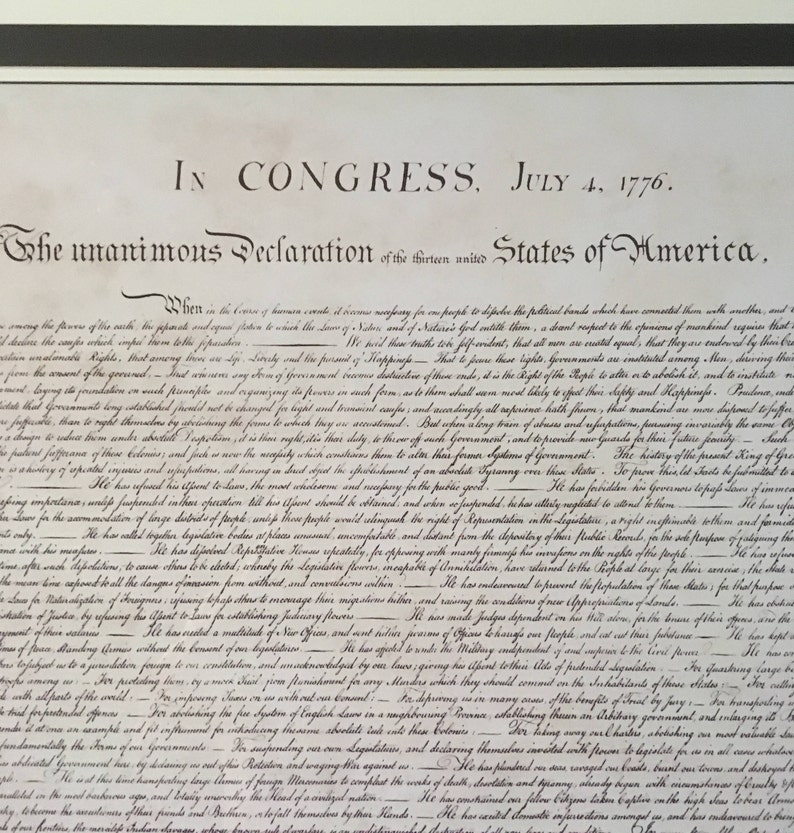 In CONGRESS, July 4, 1776.
The unanimous Declaration of the thirteen united States of America,
When in the Course of human events, it becomes necessary for one people to dissolve the political bands which have connected them with another, and
among the powers of the earth, the separate and equal station to which the Laws of Nature and of Nature's God entitle them, a decent respect to the opinions of mankind requires that
declare the causes which impel them to the separation. — We hold these truths to be self-evident, that all men are created equal, that they are endowed by their
unalienable Rights, that among these are Life, Liberty and the pursuit of Happiness — That to secure these rights, Governments are instituted among Men, deriving their
from the consent of the governed, — That whenever any Form of Government becomes destructive of these ends, it is the Right of the People to alter or to abolish it, and to institute
laying its foundation on such principles and organizing its powers in such form, as to them shall seem most likely to effect their Safety and Happiness. Prudence,
that Governments long established should not be changed for light and transient causes; and accordingly all experience hath shewn, that mankind are more disposed to suffer
sufferable, than to right themselves by abolishing the forms to which they are accustomed. But when a long train of abuses and usurpations, pursuing invariably the same
a design to reduce them under absolute Despotism, it is their right, it is their duty, to throw off such Government, and to provide new Guards for their future security. — Such
patient sufferance of these Colonies; and such is now the necessity which constrains them to alter their former Systems of Government. The history of the present King of
is a history of repeated injuries and usurpations, all having in direct object the establishment of an absolute Tyranny over these States. To prove this, let Facts be submitted to a
— He has refused his Assent to Laws, the most wholesome and necessary for the public good. — He has forbidden his Governors to pass Laws of
importance, unless suspended in their operation till his Assent should be obtained; and when so suspended, he has utterly neglected to attend to them. — He has
Laws for the accommodation of large districts of people, unless those people would relinquish the right of Representation in the Legislature, a right inestimable to them and
only. — He has called together legislative bodies at places unusual, uncomfortable, and distant from the depository of their Public Records, for the sole purpose of fatiguing
with his measures. — He has dissolved Representative Houses repeatedly, for opposing with manly firmness his invasions on the rights of the people. — He has
time, after such dissolutions, to cause others to be elected; whereby the Legislative powers, incapable of Annihilation, have returned to the People at large for their exercise; the State
the mean time exposed to all the dangers of invasion from without, and convulsions within. — He has endeavoured to prevent the population of these States; for that purpose
Laws for Naturalization of Foreigners; refusing to pass others to encourage their migrations hither, and raising the conditions of new Appropriations of Lands. — He has
of Justice, by refusing his Assent to Laws for establishing Judiciary powers. — He has made Judges dependent on his Will alone, for the tenure of their offices, and the
of their salaries. — He has erected a multitude of New Offices, and sent hither swarms of Officers to harrass our People, and eat out their substance. — He has kept
times of peace, Standing Armies without the Consent of our legislatures. — He has affected to render the Military independent of and superior to the Civil power. — He has
to subject us to a jurisdiction foreign to our constitution, and unacknowledged by our laws; giving his Assent to their Acts of pretended Legislation: — For Quartering large
troops among us: — For protecting them, by a mock Trial, from punishment for any Murders which they should commit on the Inhabitants of these States: — For
with all parts of the world: — For imposing Taxes on us without our Consent: — For depriving us in many cases, of the benefits of Trial by Jury: — For transporting
tried for pretended offences — For abolishing the free System of English Laws in a neighbouring Province, establishing therein an Arbitrary government, and enlarging its
it at once an example and fit instrument for introducing the same absolute rule into these Colonies: — For taking away our Charters, abolishing our most valuable
fundamentally the Forms of our Governments: — For suspending our own Legislatures, and declaring themselves invested with power to legislate for us in all cases
abdicated Government here, by declaring us out of his Protection and waging War against us. — He has plundered our seas, ravaged our Coasts, burnt our towns, and destroyed
— He is at this time transporting large Armies of foreign Mercenaries to compleat the works of death, desolation and tyranny, already begun with circumstances of Cruelty
in the most barbarous ages, and totally unworthy the Head of a civilized nation. — He has constrained our fellow Citizens taken Captive on the high Seas to bear
to become the executioners of their friends and Brethren, or to fall themselves by their Hands. — He has excited domestic insurrections amongst us, and has endeavoured to
of our frontiers, the merciless Indian Savages, whose known rule of warfare, is an undistinguished destruction of all